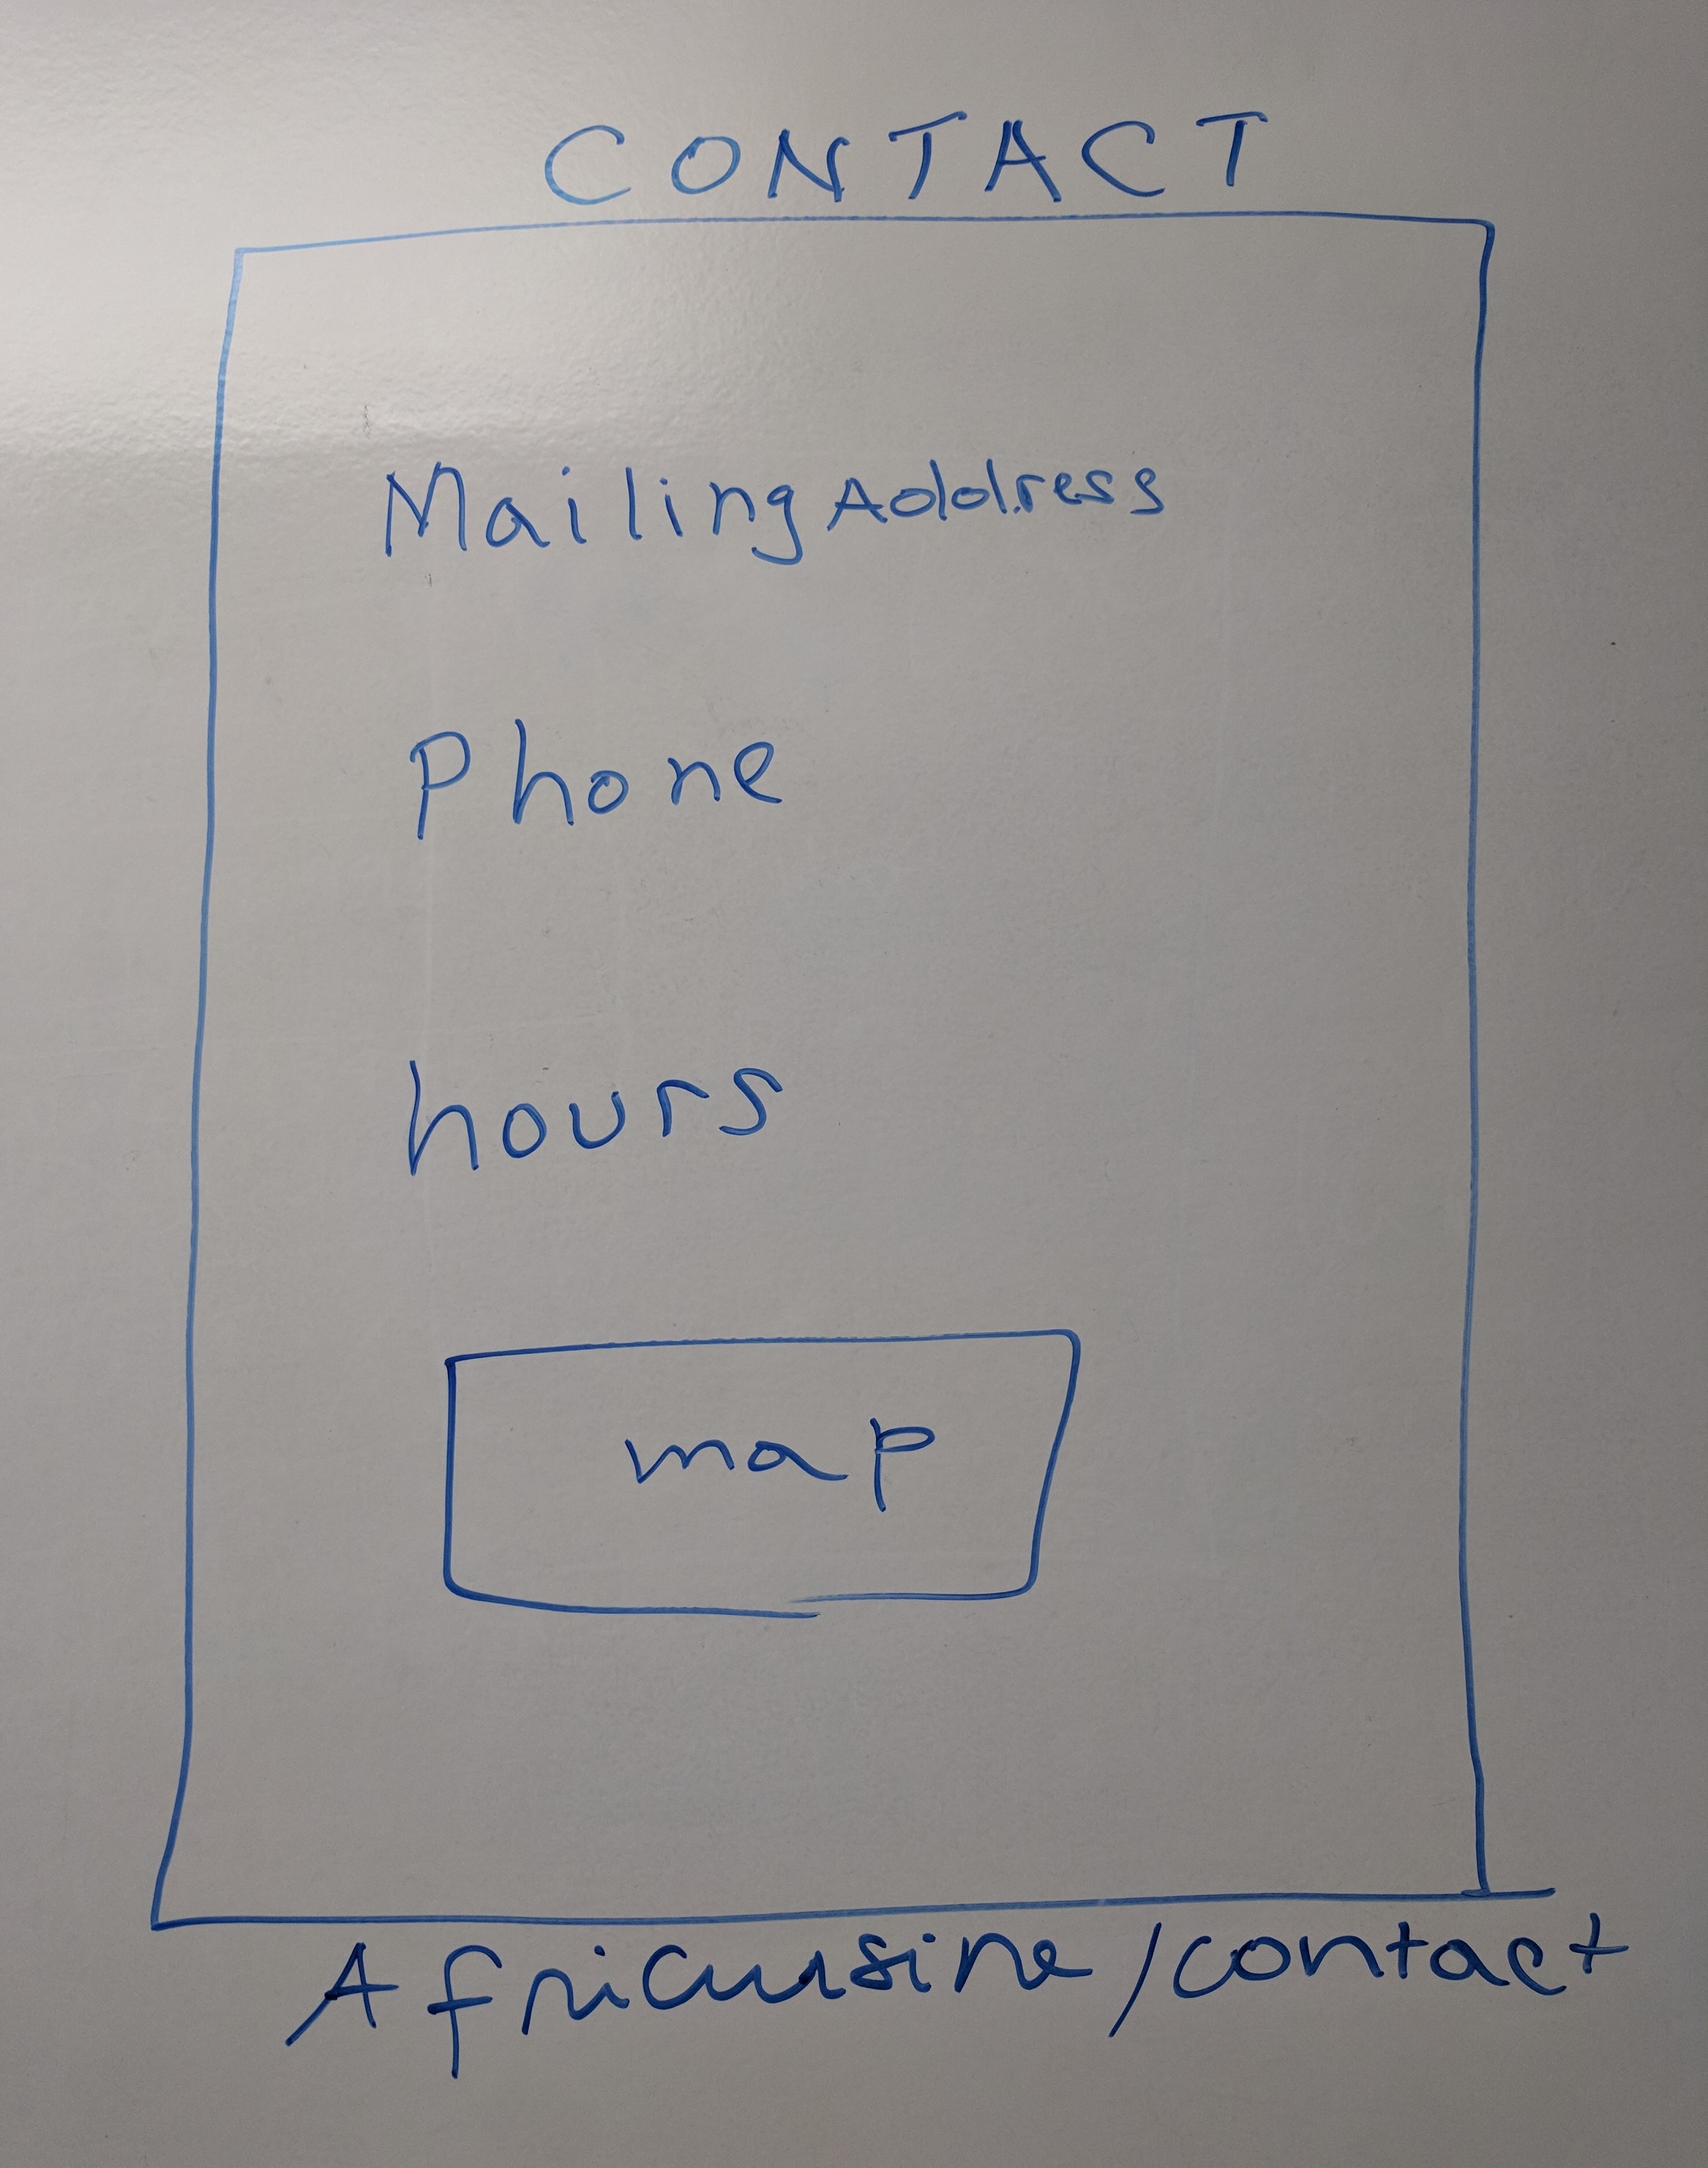 CONTACT
Mailing Address
Phone
hours
map
Africuisine/contact